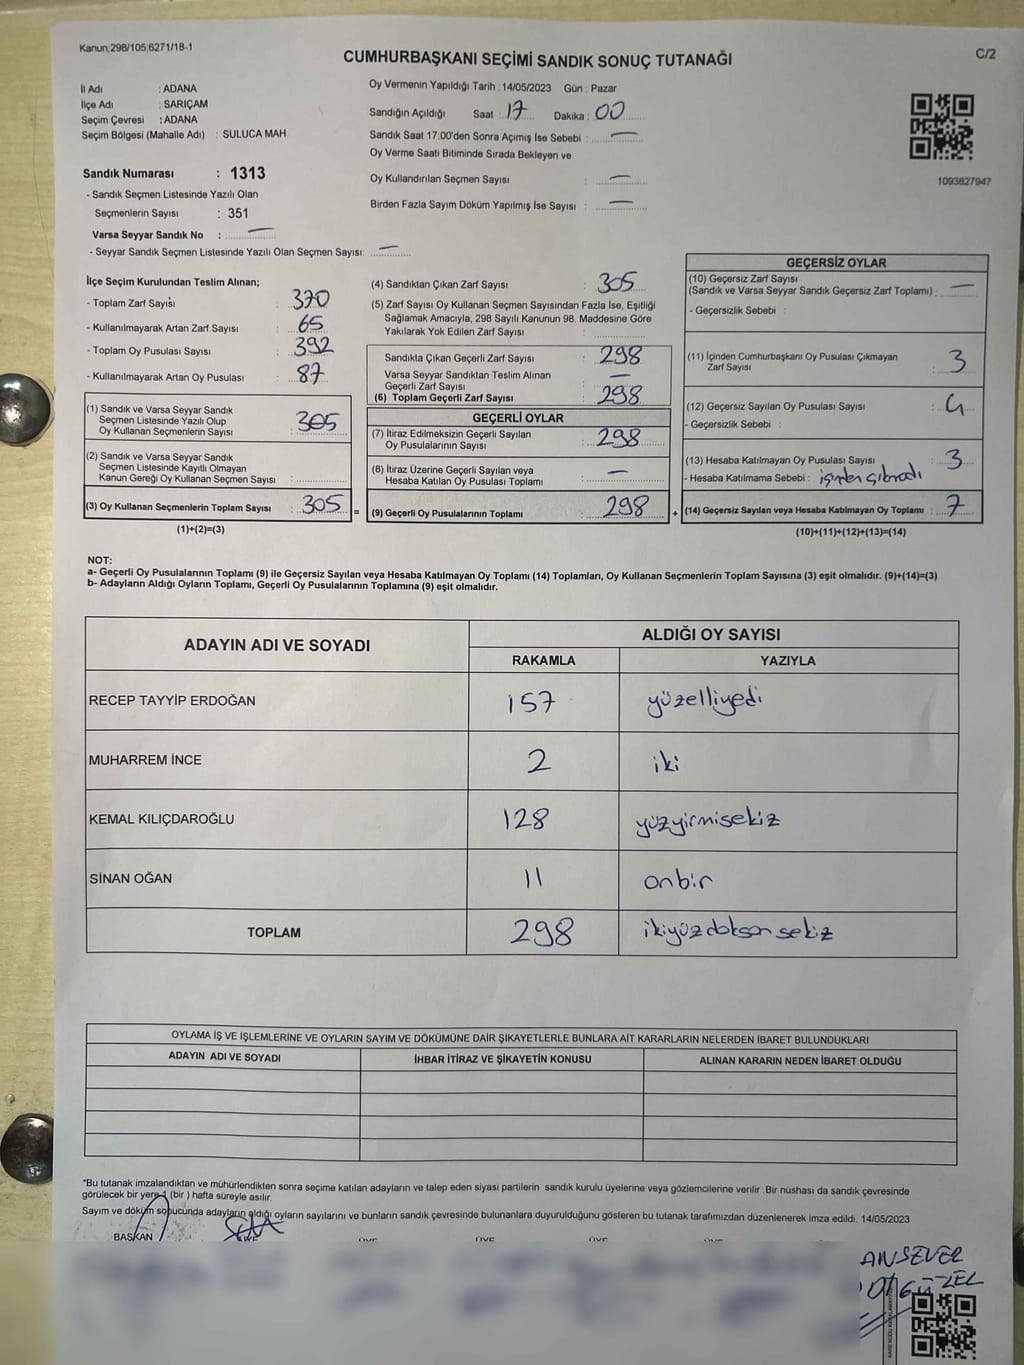 Kanun;298/105,6271/18-1
C/2
CUMHURBAŞKANI SEÇİMİ SANDIK SONUÇ TUTANAĞI
İl Adı : ADANA
İlçe Adı : SARIÇAM
Seçim Çevresi : ADANA
Seçim Bölgesi (Mahalle Adı) : SULUCA MAH.
Sandık Numarası : 1313
- Sandık Seçmen Listesinde Yazılı Olan
Seçmenlerin Sayısı : 351
Varsa Seyyar Sandık No : —
- Seyyar Sandık Seçmen Listesinde Yazılı Olan Seçmen Sayısı: —
Oy Vermenin Yapıldığı Tarih : 14/05/2023 Gün : Pazar
Sandığın Açıldığı Saat : 17 Dakika : 00
Sandık Saat 17.00'den Sonra Açımış İse Sebebi : —
Oy Verme Saati Bitiminde Sırada Bekleyen ve
Oy Kullandırılan Seçmen Sayısı : —
Birden Fazla Sayım Döküm Yapılmış İse Sayısı : —
1093827947
İlçe Seçim Kurulundan Teslim Alınan;
- Toplam Zarf Sayısı : 370
- Kullanılmayarak Artan Zarf Sayısı : 65
- Toplam Oy Pusulası Sayısı : 392
- Kullanılmayarak Artan Oy Pusulası : 87
(1) Sandık ve Varsa Seyyar Sandık
Seçmen Listesinde Yazılı Olup
Oy Kullanan Seçmenlerin Sayısı : 305
(2) Sandık ve Varsa Seyyar Sandık
Seçmen Listesinde Kayıtlı Olmayan
Kanun Gereği Oy Kullanan Seçmen Sayısı :
(3) Oy Kullanan Seçmenlerin Toplam Sayısı : 305 =
(1)+(2)=(3)
(4) Sandıktan Çıkan Zarf Sayısı : 305
(5) Zarf Sayısı Oy Kullanan Seçmen Sayısından Fazla İse, Eşitliği
Sağlamak Amacıyla, 298 Sayılı Kanunun 98. Maddesine Göre
Yakılarak Yok Edilen Zarf Sayısı :
Sandıkta Çıkan Geçerli Zarf Sayısı : 298
Varsa Seyyar Sandıktan Teslim Alınan
Geçerli Zarf Sayısı : —
(6) Toplam Geçerli Zarf Sayısı : 298
GEÇERLİ OYLAR
(7) İtiraz Edilmeksizin Geçerli Sayılan
Oy Pusulalarının Sayısı : 298
(8) İtiraz Üzerine Geçerli Sayılan veya
Hesaba Katılan Oy Pusulası Toplamı : —
(9) Geçerli Oy Pusulalarının Toplamı : 298 +
GEÇERSİZ OYLAR
(10) Geçersiz Zarf Sayısı
(Sandık ve Varsa Seyyar Sandık Geçersiz Zarf Toplamı) : —
- Geçersizlik Sebebi :
(11) İçinden Cumhurbaşkanı Oy Pusulası Çıkmayan
Zarf Sayısı : 3
(12) Geçersiz Sayılan Oy Pusulası Sayısı : 4
- Geçersizlik Sebebi :
(13) Hesaba Katılmayan Oy Pusulası Sayısı : 3
- Hesaba Katılmama Sebebi : içinden çıkmadı
(14) Geçersiz Sayılan veya Hesaba Katılmayan Oy Toplamı : 7
(10)+(11)+(12)+(13)=(14)
NOT:
a- Geçerli Oy Pusulalarının Toplamı (9) ile Geçersiz Sayılan veya Hesaba Katılmayan Oy Toplamı (14) Toplamları, Oy Kullanan Seçmenlerin Toplam Sayısına (3) eşit olmalıdır. (9)+(14)=(3)
b- Adayların Aldığı Oyların Toplamı, Geçerli Oy Pusulalarının Toplamına (9) eşit olmalıdır.
ADAYIN ADI VE SOYADI ALDIĞI OY SAYISI
RAKAMLA YAZIYLA
RECEP TAYYİP ERDOĞAN 157 yüzelliyedi
MUHARREM İNCE 2 iki
KEMAL KILIÇDAROĞLU 128 yüzyirmisekiz
SİNAN OĞAN 11 onbir
TOPLAM 298 ikiyüzdoksansekiz
OYLAMA İŞ VE İŞLEMLERİNE VE OYLARIN SAYIM VE DÖKÜMÜNE DAİR ŞİKAYETLERLE BUNLARA AİT KARARLARIN NELERDEN İBARET BULUNDUKLARI
ADAYIN ADI VE SOYADI İHBAR İTİRAZ VE ŞİKAYETİN KONUSU ALINAN KARARIN NEDEN İBARET OLDUĞU
*Bu tutanak imzalandıktan ve mühürlendikten sonra seçime katılan adayların ve talep eden siyasi partilerin sandık kurulu üyelerine veya gözlemcilerine verilir .Bir nüshası da sandık çevresinde
görülecek bir yere 1 (bir ) hafta süreyle asılır.
Sayım ve döküm sonucunda adayların aldığı oyların sayılarını ve bunların sandık çevresinde bulunanlara duyurulduğunu gösteren bu tutanak tarafımızdan düzenlenerek imza edildi. 14/05/2023
BAŞKAN ÜYE ÜYE ÜYE ÜYE ÜYE
ANSEVER
GÜZEL